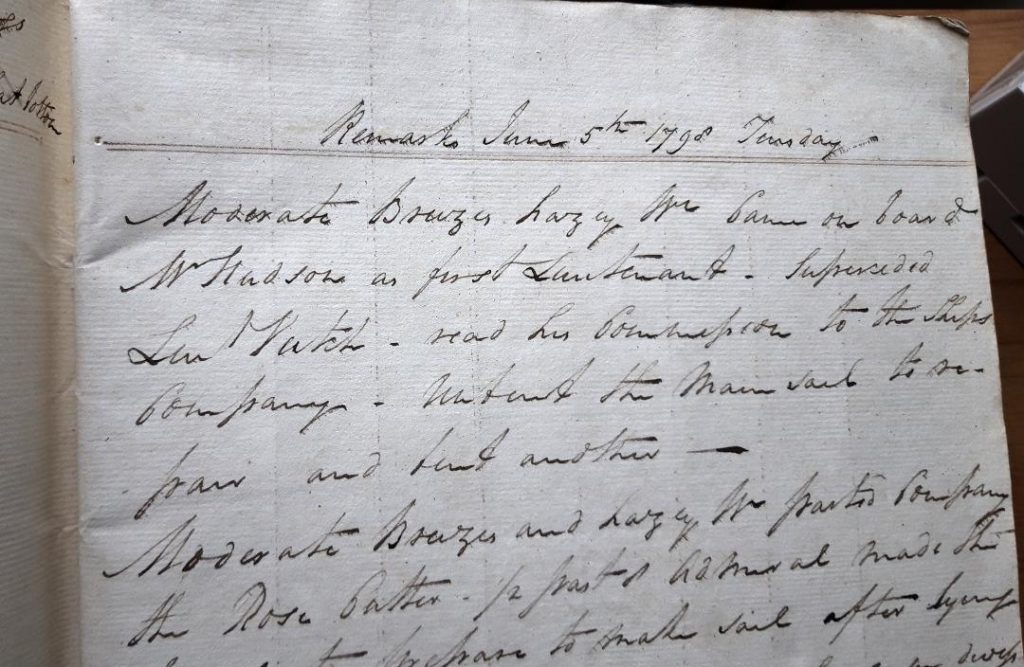 Remarks June 5th 1798 Tuesday
Moderate Breezes hazey Wr Came on board
Mr Hudson as first Lieutenant - Superceded
Lieut Veitch - read his Commission to the Ships
Company - Unbent the Main sail to re-
pair and bent another —
Moderate Breezes and hazey Wr parted Company
the Rose Cutter - ½ past 8 Admiral made the
to prepare to make sail after lying